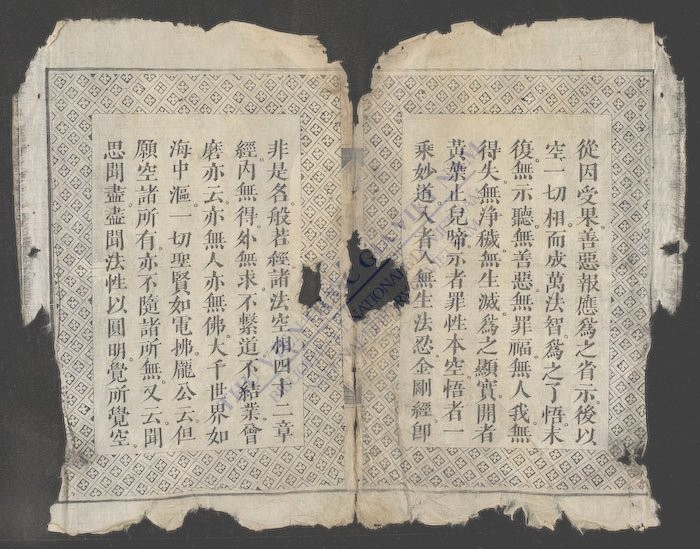 從因受果善惡報應爲之省示後以
空一切相而成萬法智爲之了悟末
復無示聽無善惡無罪福無人我無
得失無淨穢無生滅爲之顯實開者
黃葉止兒啼示者罪性本空悟者一
乘妙道入者入無生法忍金剛經卽
非是名般若經諸法空相四十二章
經內無得外無求不繫道不結業曾
磨亦云亦無人亦無佛大千世界如
海中漚一切聖賢如電拂龐公云但
願空諸所有亦不隨諸所無又云聞
思聞盡盡聞法性以圓明覺所覺空